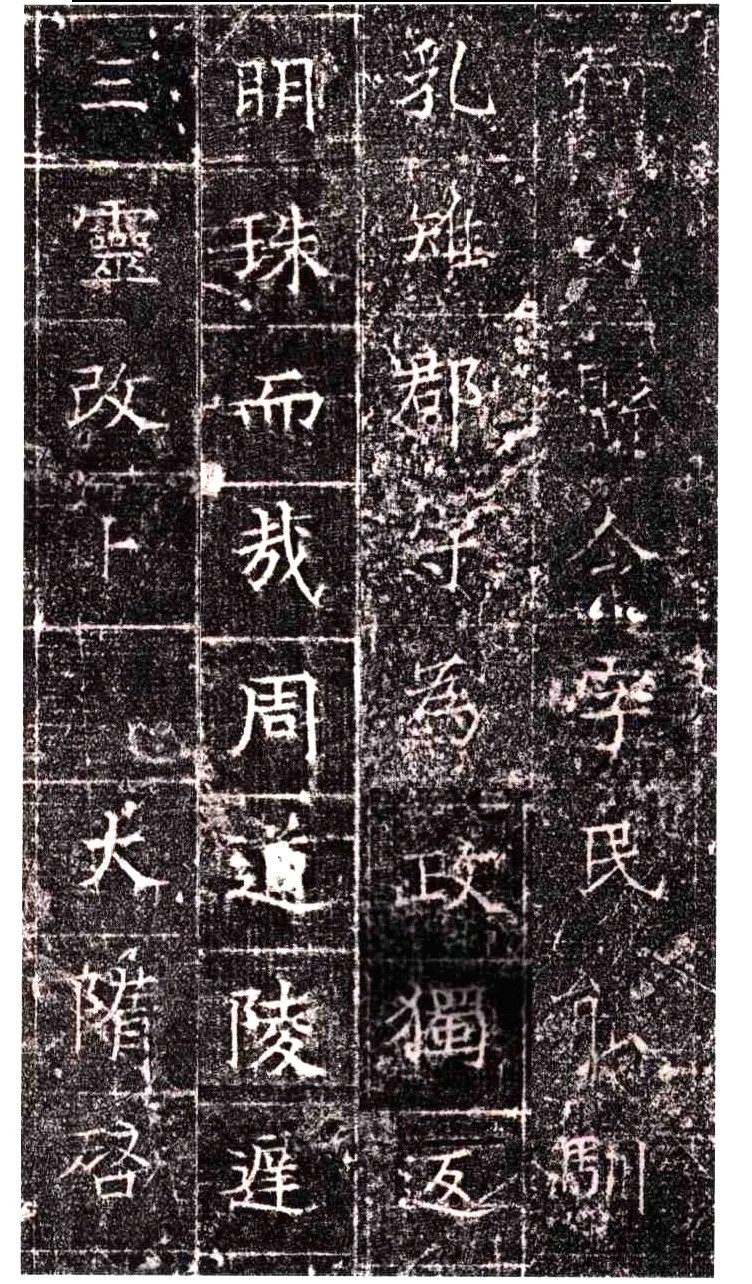 縣令宰民能馴
乳雉郡守為政獨返
明珠而哉周道陵遲
三靈改卜大隋啓